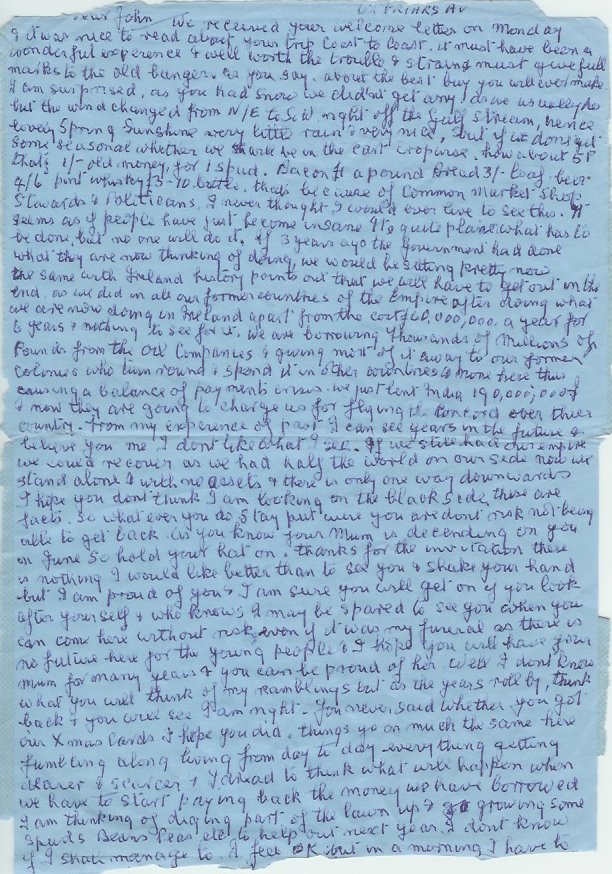 62 FRIARS AV
Dear John We received your welcome letter on Monday
& it was nice to read about your trip Coast to Coast, it must have been a
wonderful experience & well worth the trouble & strain must give full
marks to the old banger. As you say about the best buy you will ever make
I am surprised, as you had snow we didn't get any as we usually do
but the wind changed from N/E to S.W. right off the Gulf Stream, hence
lovely Spring Sunshine very little rain & very nice, but if we don't get
some seasonal whether we shall be in the cart cropwise. how about 5P
thats 1/- old money, for 1 spud. Bacon £1 a pound Bread 3/- loaf. beer
4/6 pint whiskey £3-10 bottle. thats because of Common Market Shop
Stewards & Politicans, I never thought I would ever live to see this. It
seems as if people have just become insane Its quite plain what has to
be done, but no one will do it. If 3 years ago the Government had done
what they are now thinking of doing, we would be sitting pretty now
the same with Ireland history points out that we will have to get out in the
end. as we did in all our former countries of the Empire after doing what
we are now doing in Ireland apart from the cost £60,000,000. a year for
6 years & nothing to see for it. We are borrowing thousands of Millions of
Pounds from the Oil Companies & giving most of it away to our former
Colonies who turn round & spend it in other countries & none here thus
causing a balance of payments crisis. we just lent India 190,000,000 £
& now they are going to charge us for flying the Concord over thier
country. From my experience of past I can see years in the future &
believe you me I dont like what I see. If we still had our empire
we could recover as we had half the world on our side now we
stand alone & with no assets & there is only one way downwards
I hope you dont think I am looking on the black side, these are
facts. So what ever you do, Stay put were you are dont risk not being
able to get back. As you know your Mum is decending on you
in June so hold your hat on. thanks for the invitation there
is nothing I would like better than to see you & shake your hand
but I am proud of you & I am sure you will get on if you look
after yourself & who knows I may be spared to see you when you
can come here without risk, even if it was my funeral as there is
no future here for the young people & I hope you will have your
Mum for many years & you can be proud of her. Well I dont know
what you will think of my ramblings but as the years roll by, think
back & you will see I am right. You never said whether you got
our Xmas Cards I hope you did. things go on much the same here
fumbling along living from day to day everything getting
dearer & scarcer & I dread to think what will happen when
we have to start paying back the money we have borrowed
I am thinking of diging part of the lawn up & growing some
Spuds Beans Peas etc to help out next year. I dont know
if I shall manage to I feel OK but in a morning I have to